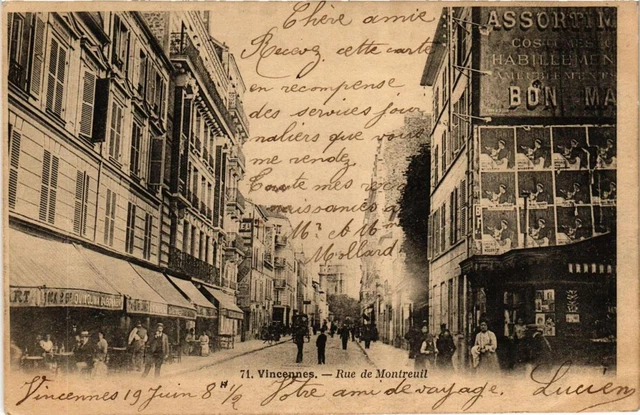 Chère amie
Recevez cette carte
en recompense
des services jour
naliers que vous
me rendez
Toute mes recon
naissances a
Mr et Mme
Mollard
ASSORTIM
COSTUMES
HABILLEM
AMEUBLEMENT
BON MA
71. Vincennes. — Rue de Montreuil
Vincennes 19 Juin 8 H ½ Votre ami de voyage. Lucien